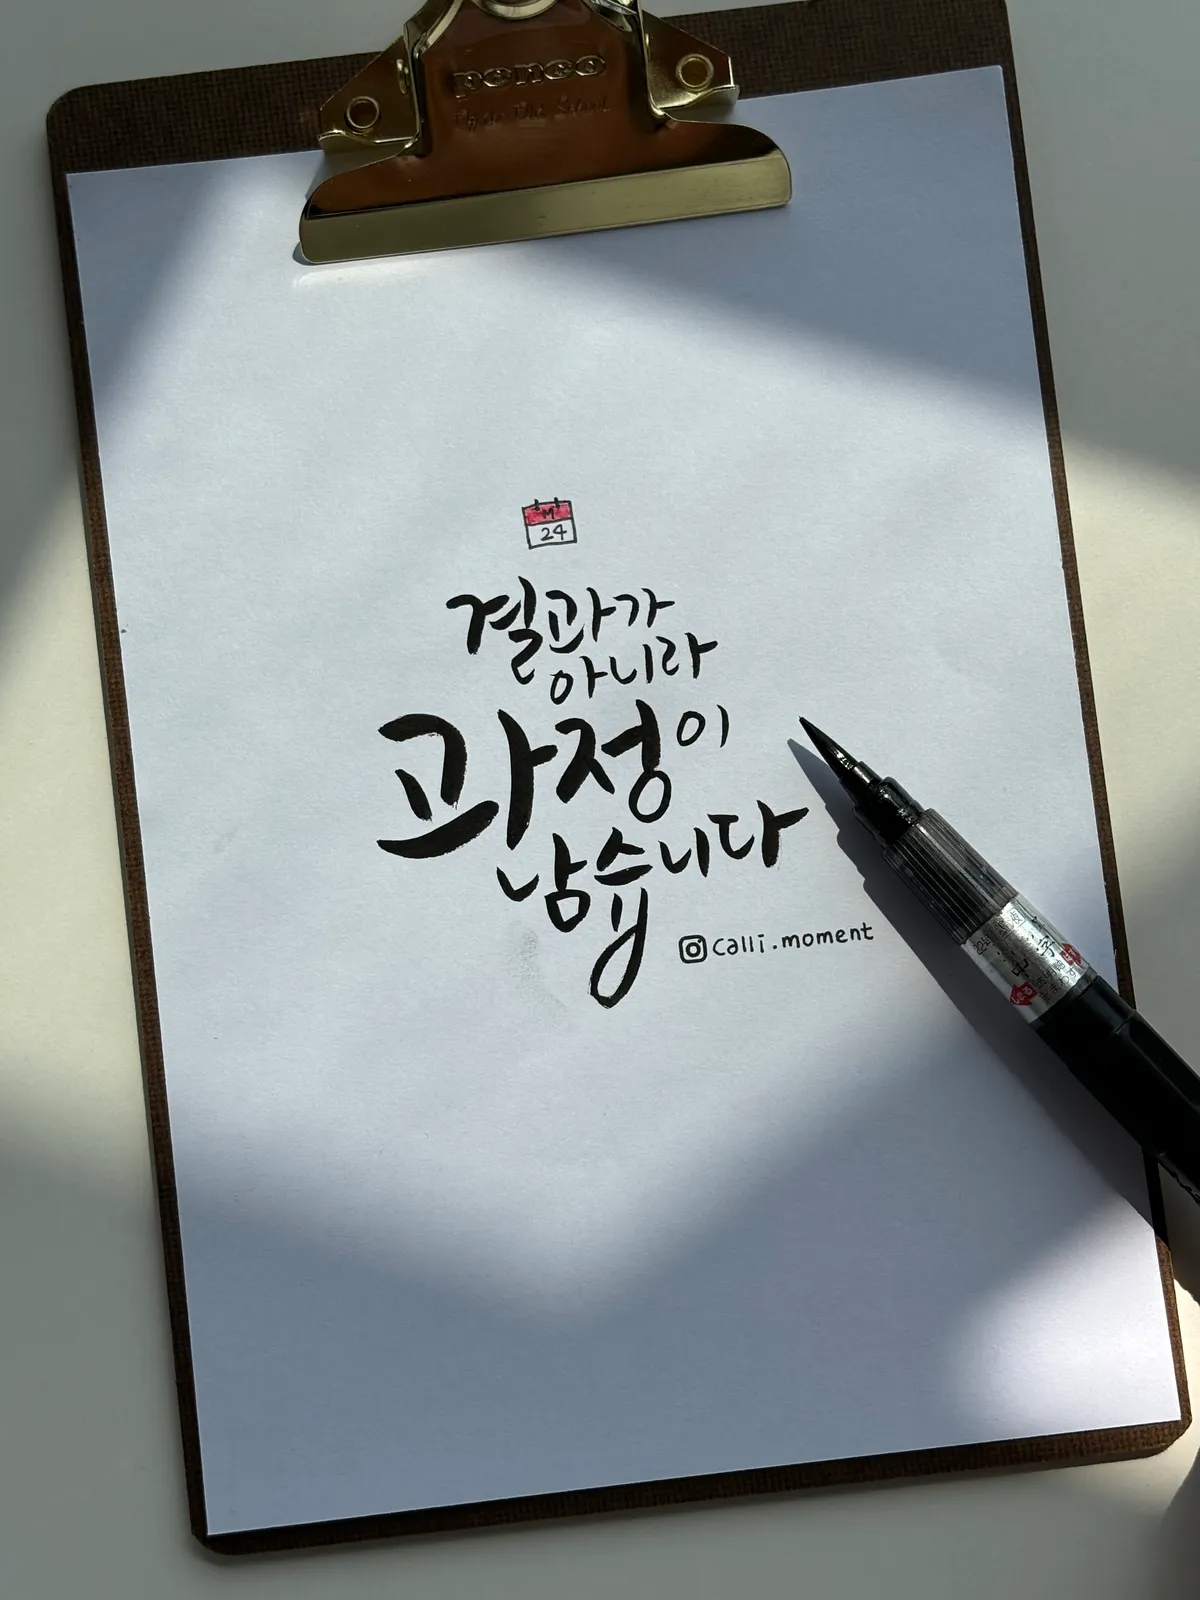 penco
M
24
결과가
아니라
과정이
남습니다
calli.moment
中字